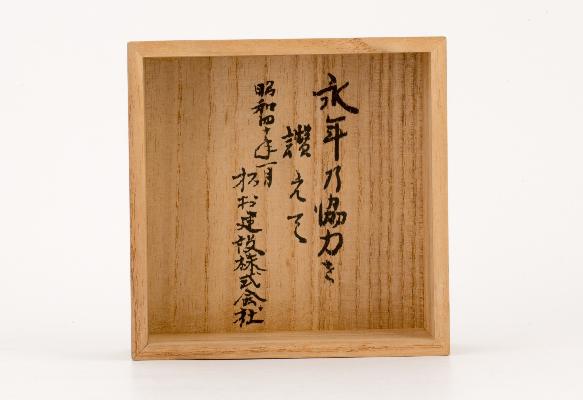 永年乃協力を
讚えて
昭和四十年一月
松村建設株式会社